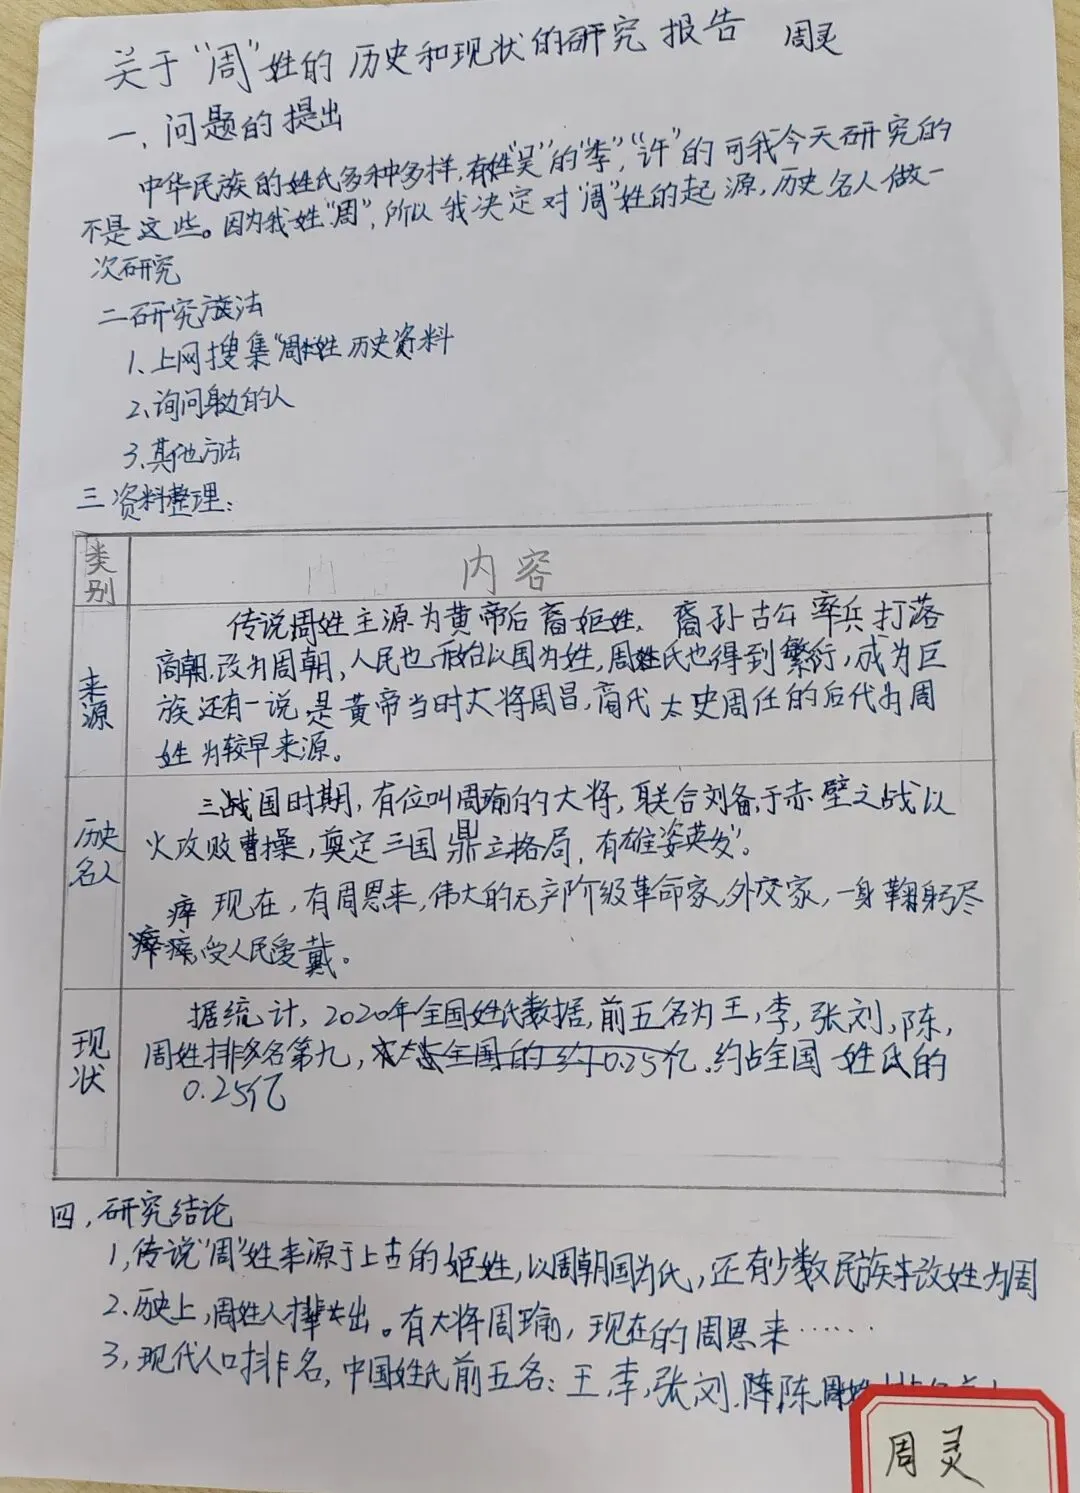 关于“周”姓的历史和现状的研究报告 周灵
一、问题的提出
中华民族的姓氏多种多样,有姓“吴”的“李”,“许”的可我今天研究的
不是这些。因为我姓“周”,所以我决定对“周”姓的起源,历史名人做一
次研究
二研究方法
1、上网搜集“周”姓历史资料
2、询问身边的人
3、其他方法
三资料整理:
类别
内容
来源
传说周姓主源为黄帝后裔姬姓,裔孙古公率兵打落
商朝,改为周朝,人民也开始以国为姓,周姓氏也得到繁衍,成为巨
族还有一说是黄帝当时大将周昌,商代太史周任的后代为周
姓为较早来源。
历史
名人
三战国时期,有位叫周瑜的大将,联合刘备,于赤壁之战以
火攻败曹操,奠定三国鼎立格局,有“雄姿英发”。
瘁 现在,有周恩来,伟大的无产阶级革命家,外交家,一身鞠躬尽
受人民爱戴。
现状
据统计,2020年全国姓氏数据,前五名为王,李,张刘,陈,
周姓排名第九,全国的约0.25亿.约占全国姓氏的
0.25亿
四,研究结论
1,传说“周”姓来源于上古的姬姓,以周朝国为氏,还有少数民族来改姓为周
2.历史上,周姓人才辈出。有大将周瑜,现在的周恩来……
3,现代人口排名,中国姓氏前五名:王,李,张刘.陈,周姓
周灵